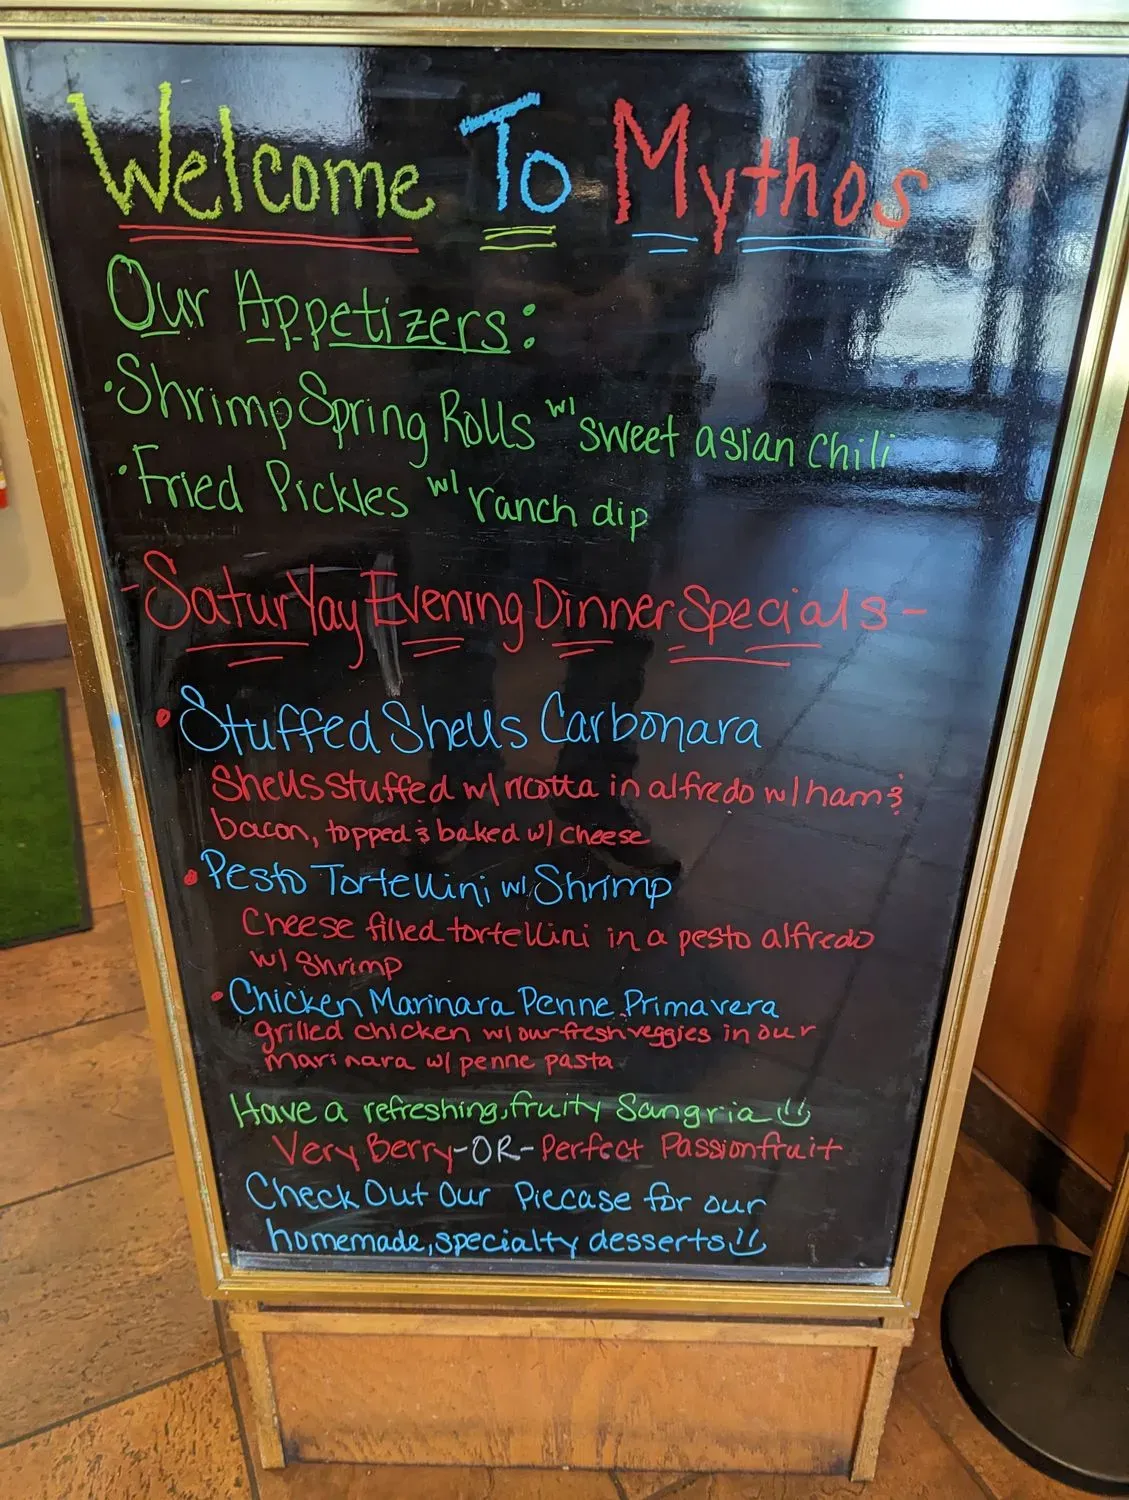 Welcome To Mythos
Our Appetizers:
• Shrimp Spring Rolls w/ sweet asian chili
• Fried Pickles w/ ranch dip
- SaturYay Evening Dinner Specials -
• Stuffed Shells Carbonara
Shells stuffed w/ ricotta in alfredo w/ ham &
bacon, topped & baked w/ cheese
• Pesto Tortellini w/ Shrimp
Cheese filled tortellini in a pesto alfredo
w/ Shrimp
• Chicken Marinara Penne Primavera
grilled chicken w/ our fresh veggies in our
marinara w/ penne pasta
Have a refreshing, fruity Sangria
Very Berry -OR- Perfect Passionfruit
Check Out Our Piecase for our
homemade, specialty desserts